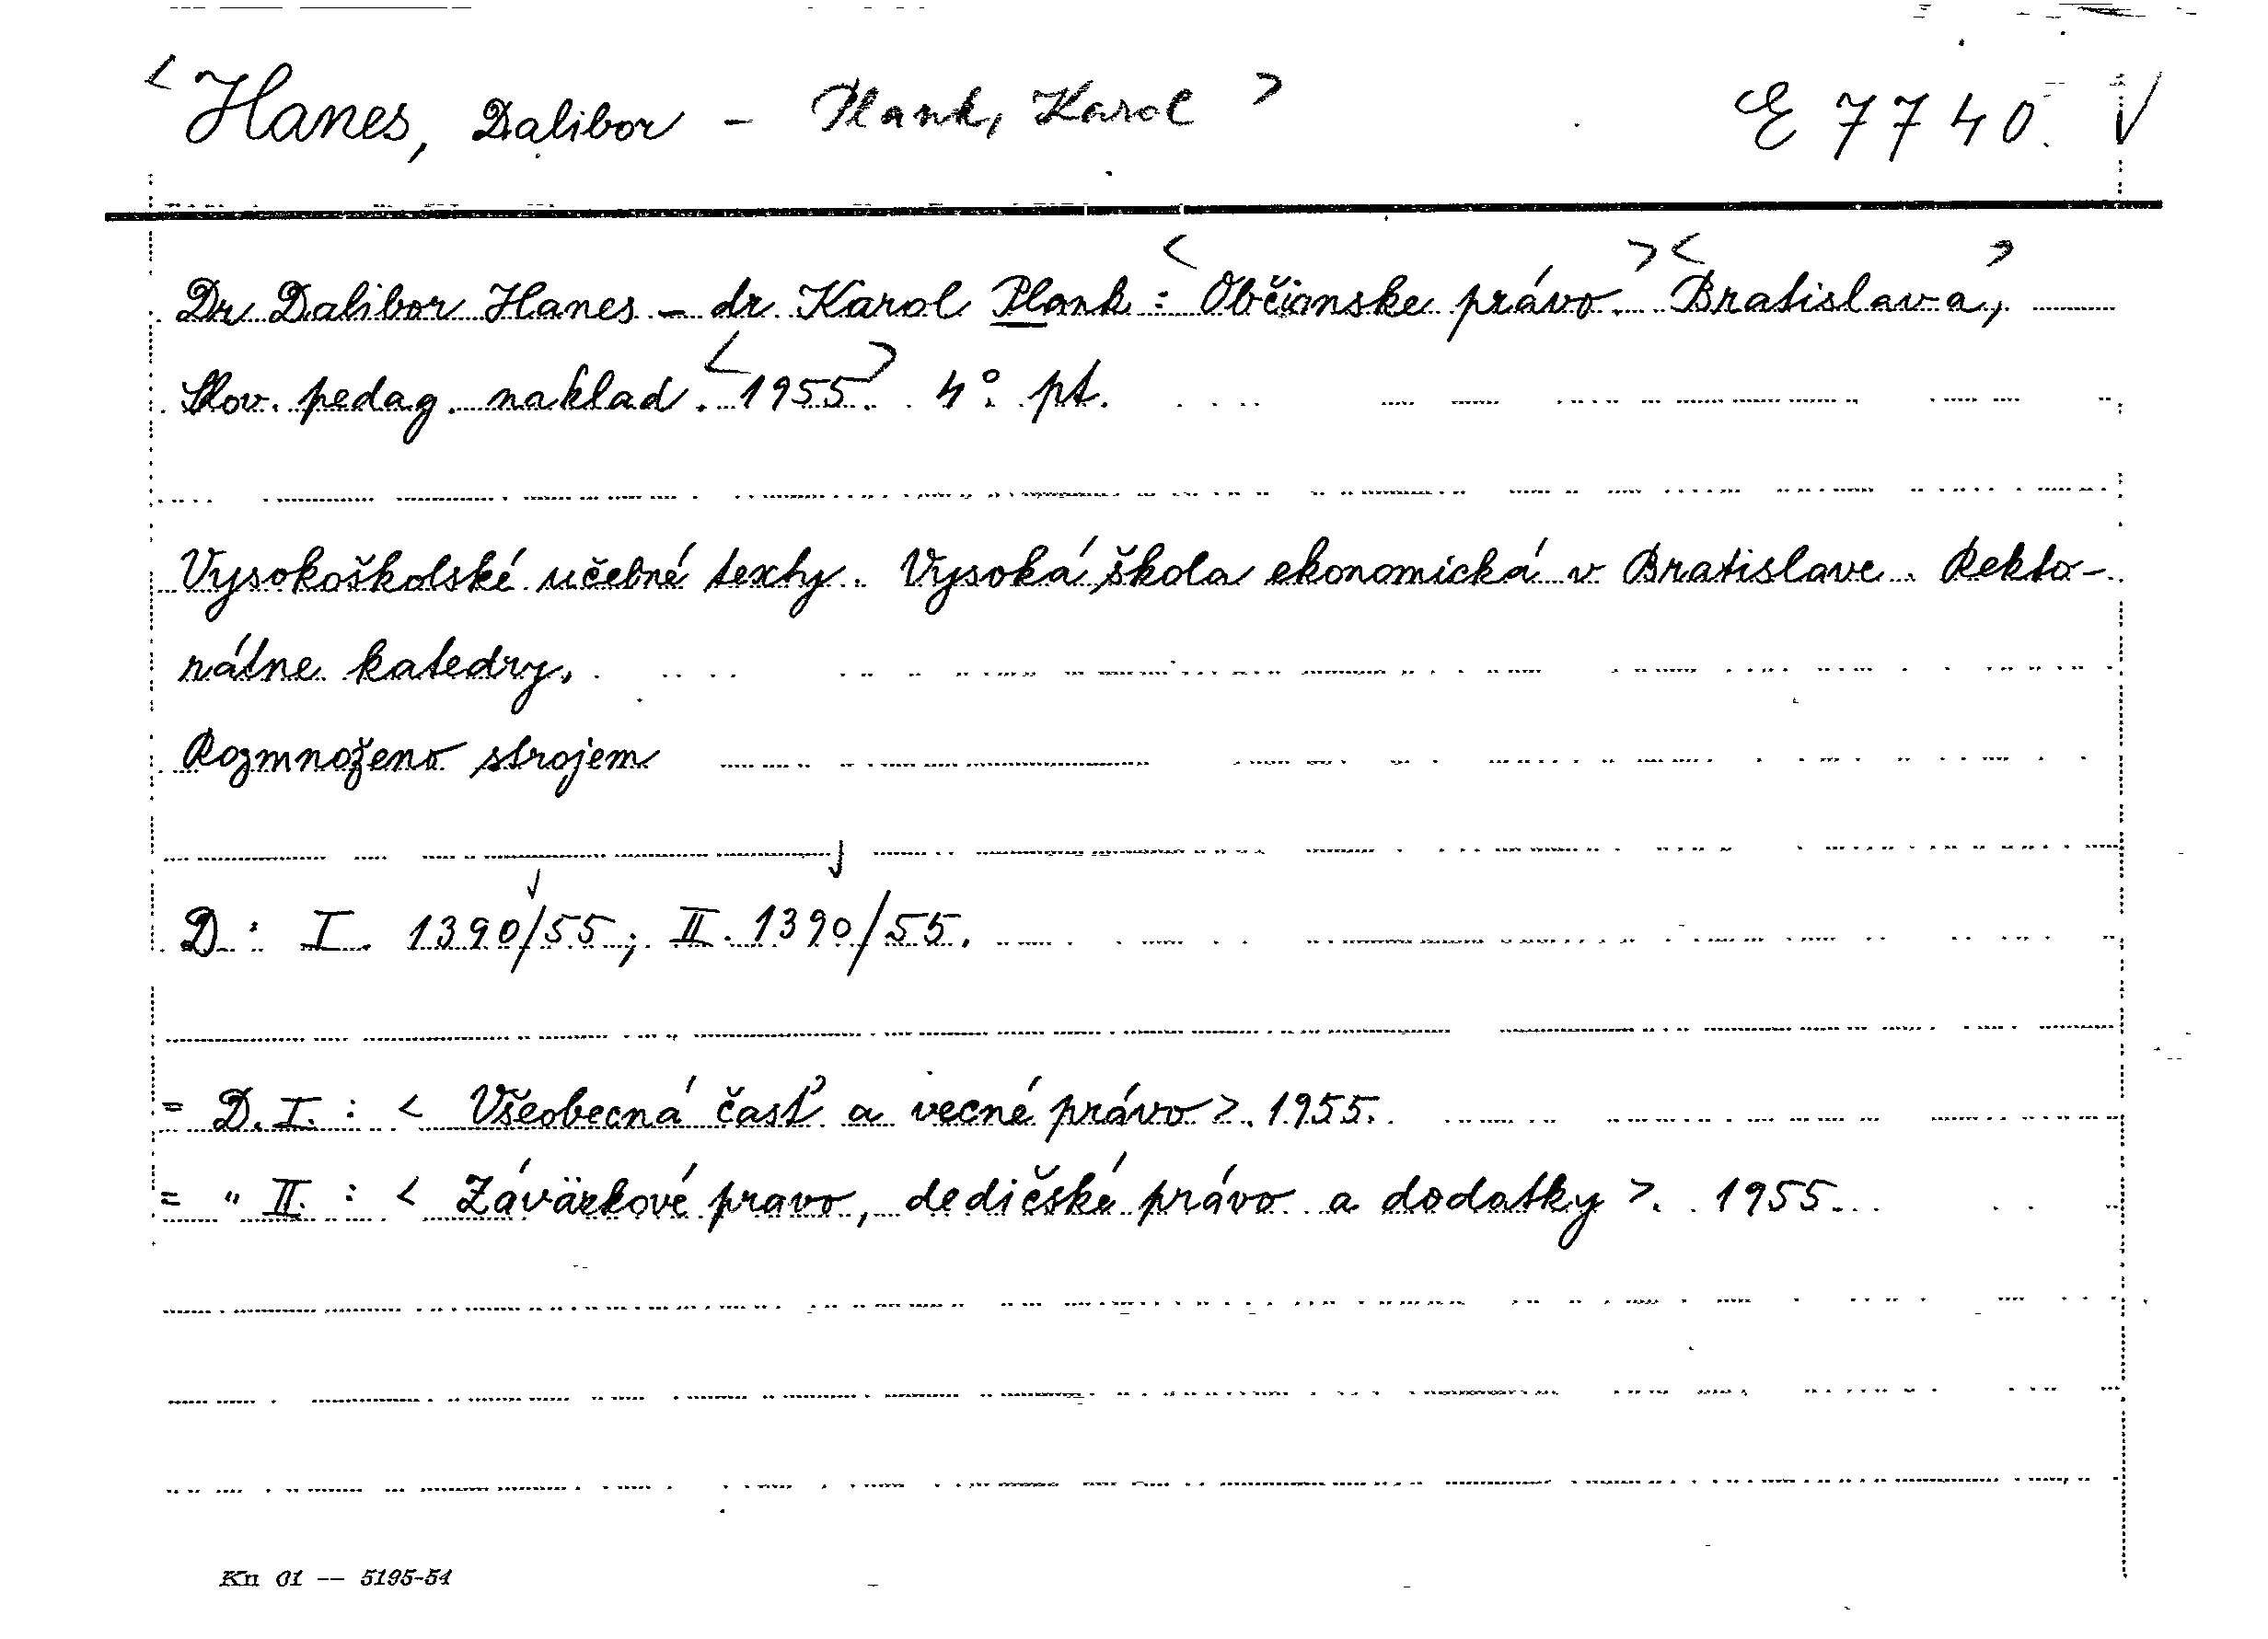 < Hanes, Dalibor - Plank, Karol > E 7740. V
Dr Dalibor Hanes - dr Karol Plank : < Občianske právo. > < Bratislava, >
Slov. pedag. naklad. < 1955. > 4° pt.
Vysokoškolské učebné texty. Vysoká škola ekonomická v Bratislave. Rekto-
rátne katedry.
Rozmnoženo strojem
D : I. 1390/55; II. 1390/55.
= D. I. : < Všeobecná časť a vecné právo >. 1955.
= " II. : < Záväzkové pravo, dedičské právo a dodatky >. 1955.
Kn 01 — 5195-54